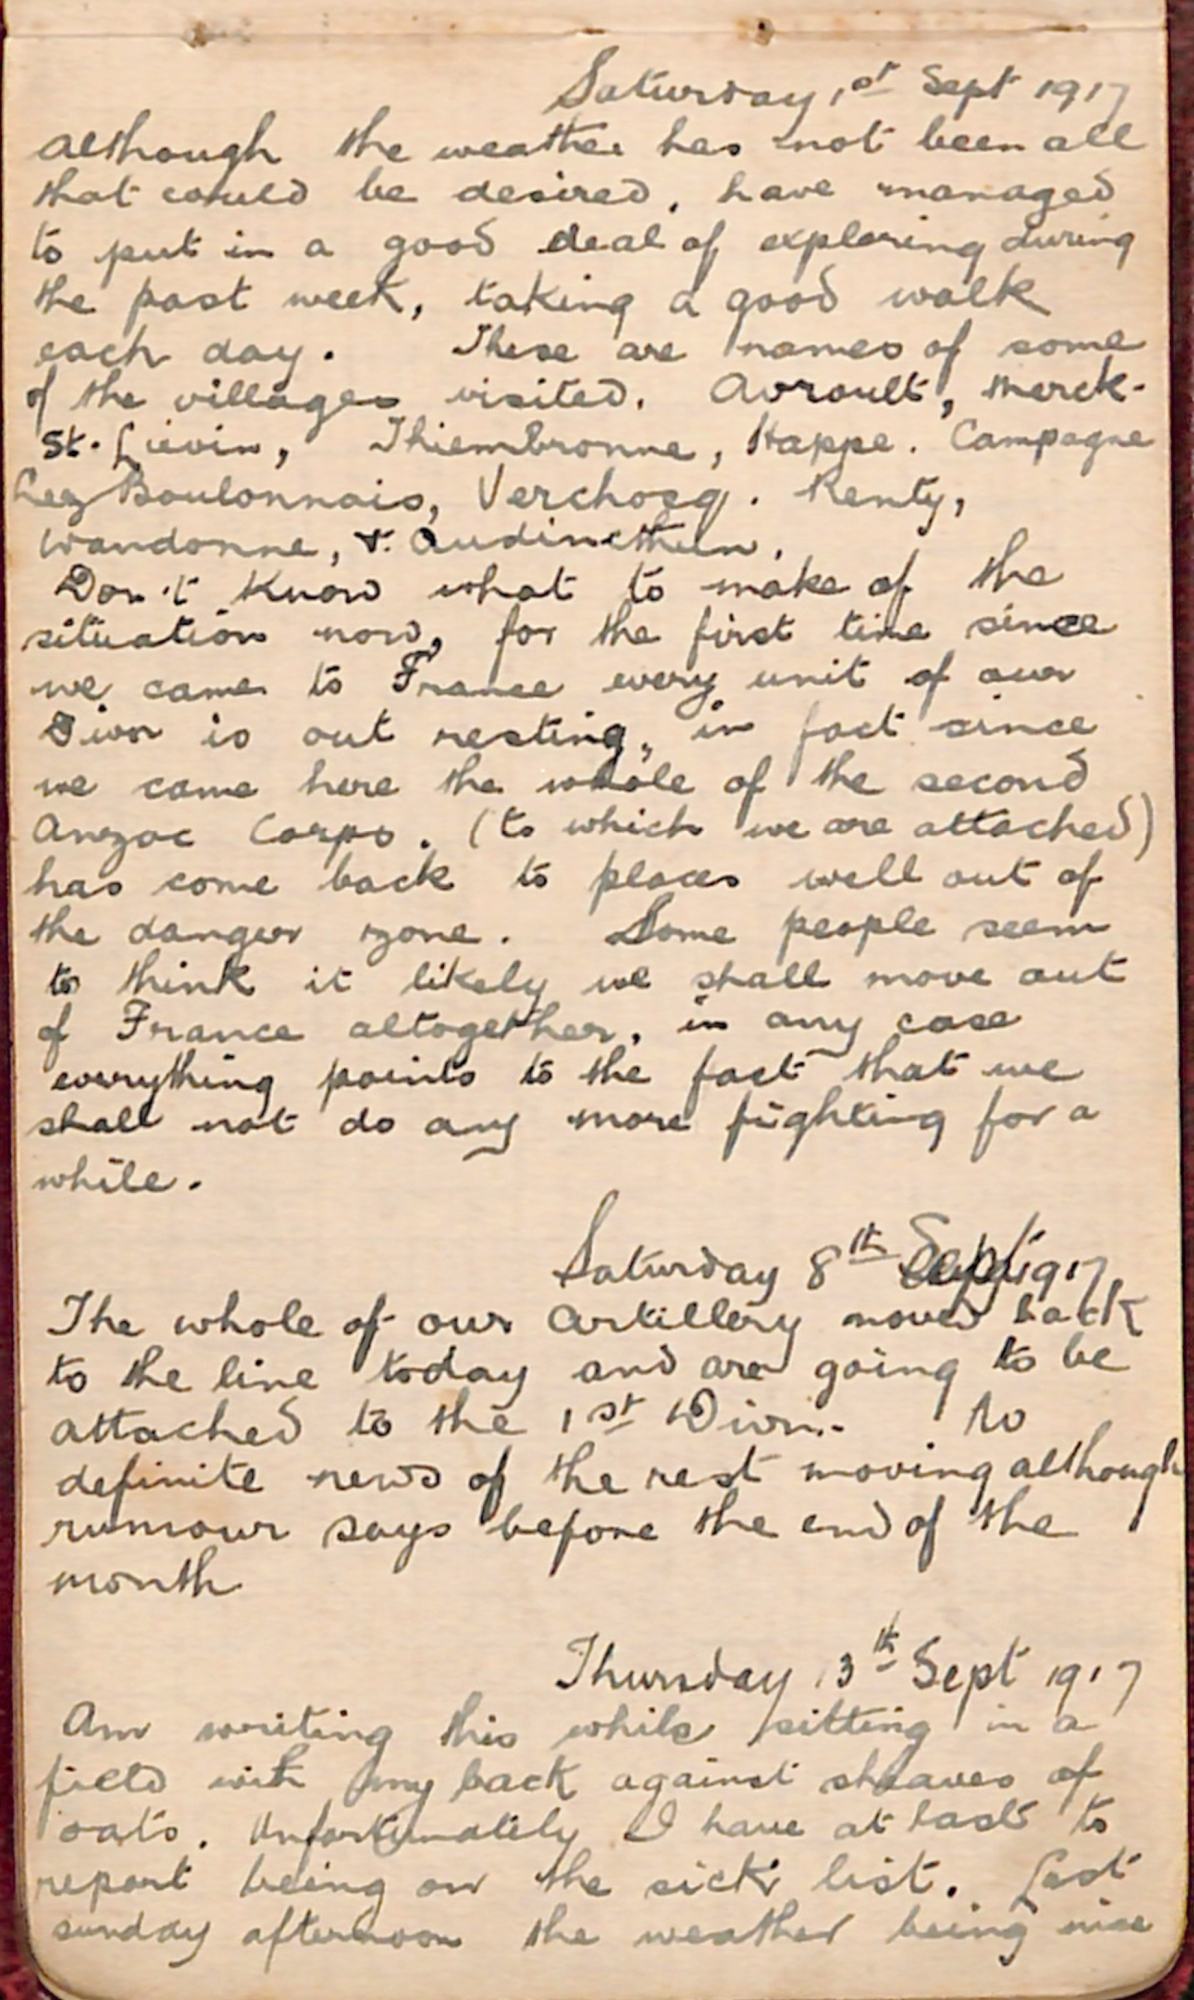 Saturday 1st Sept 1917
Although the weather has not been all
that could be desired, have managed
to put in a good deal of exploring during
the past week, taking a good walk
each day. These are names of some
of the villages visited. Avroult, Merck-
St. Lievin, Thiembronne, Happe. Campagne
Lez Boulonnais, Verchocq. Renty,
Wandonne, & Audincthun.
Don't know what to make of the
situation now, for the first time since
we came to France every unit of our
Divn is out resting, in fact since
we came here the whole of the second
Anzac Corps. (to which we are attached)
has come back to places well out of
the danger zone. Some people seem
to think it likely we shall move out
of France altogether, in any case
everything points to the fact that we
shall not do any more fighting for a
while.
Saturday 8th Sept 1917
The whole of our Artillery moved back
to the line today and are going to be
attached to the 1st Divn. No
definite news of the rest moving although
rumour says before the end of the
month
Thursday 13th Sept 1917
Am writing this while sitting in a
field with my back against sheaves of
oats. Unfortunately I have at last to
report being on the sick list. Last
sunday afternoon the weather being nice